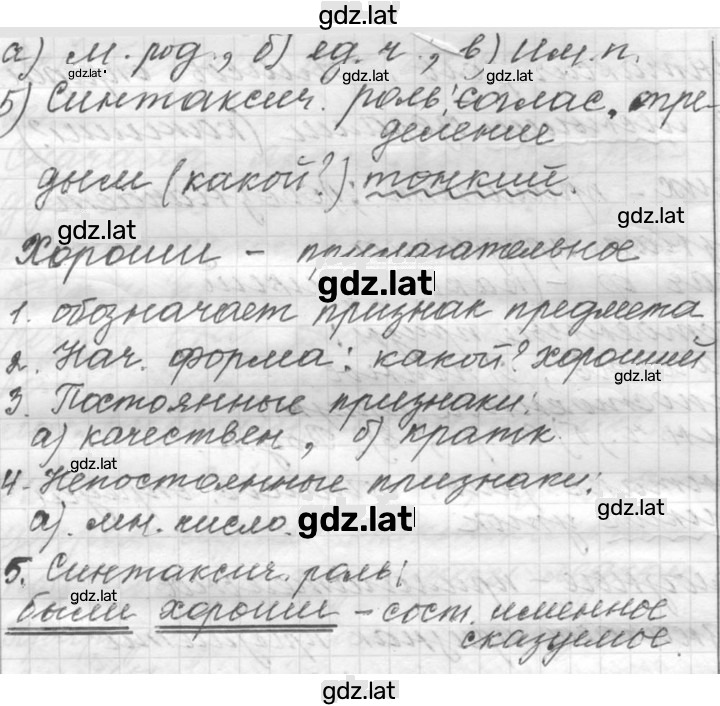 gdz.lat
а) м. род., б) ед. ч., в) Им. п.
gdz.lat
gdz.lat
gdz.lat
5) Синтаксич. роль: соглас. опре-
деление
дым (какой?). тонкий.
gdz.lat
gdz.lat
Хороши - прилагательное
gdz.lat
1. обозначает признак предмета
2. Нач. форма: какой? хороший
gdz.lat
3. Постоянные признаки:
а) качествен, б) кратк.
gdz.lat
4. Непостоянные признаки:
gdz.lat
а). мн. число.
gdz.lat
5. Синтаксич. роль:
gdz.lat
были хороши - сост. именное
сказуемое.
gdz.lat